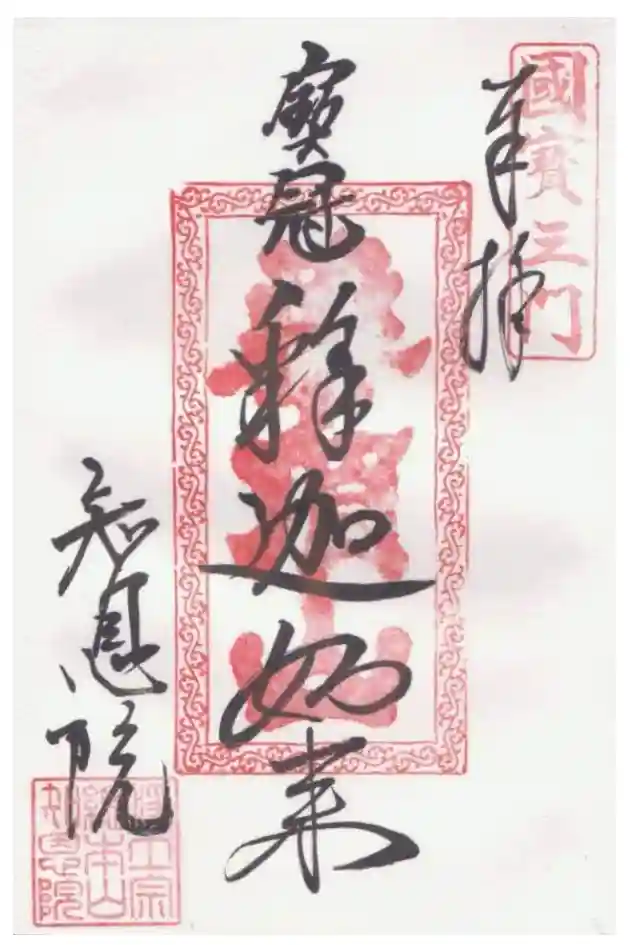 國寳三門
奉拝
寳冠釋迦如来
華頂山
知恩院
浄土宗
総本山
知恩院